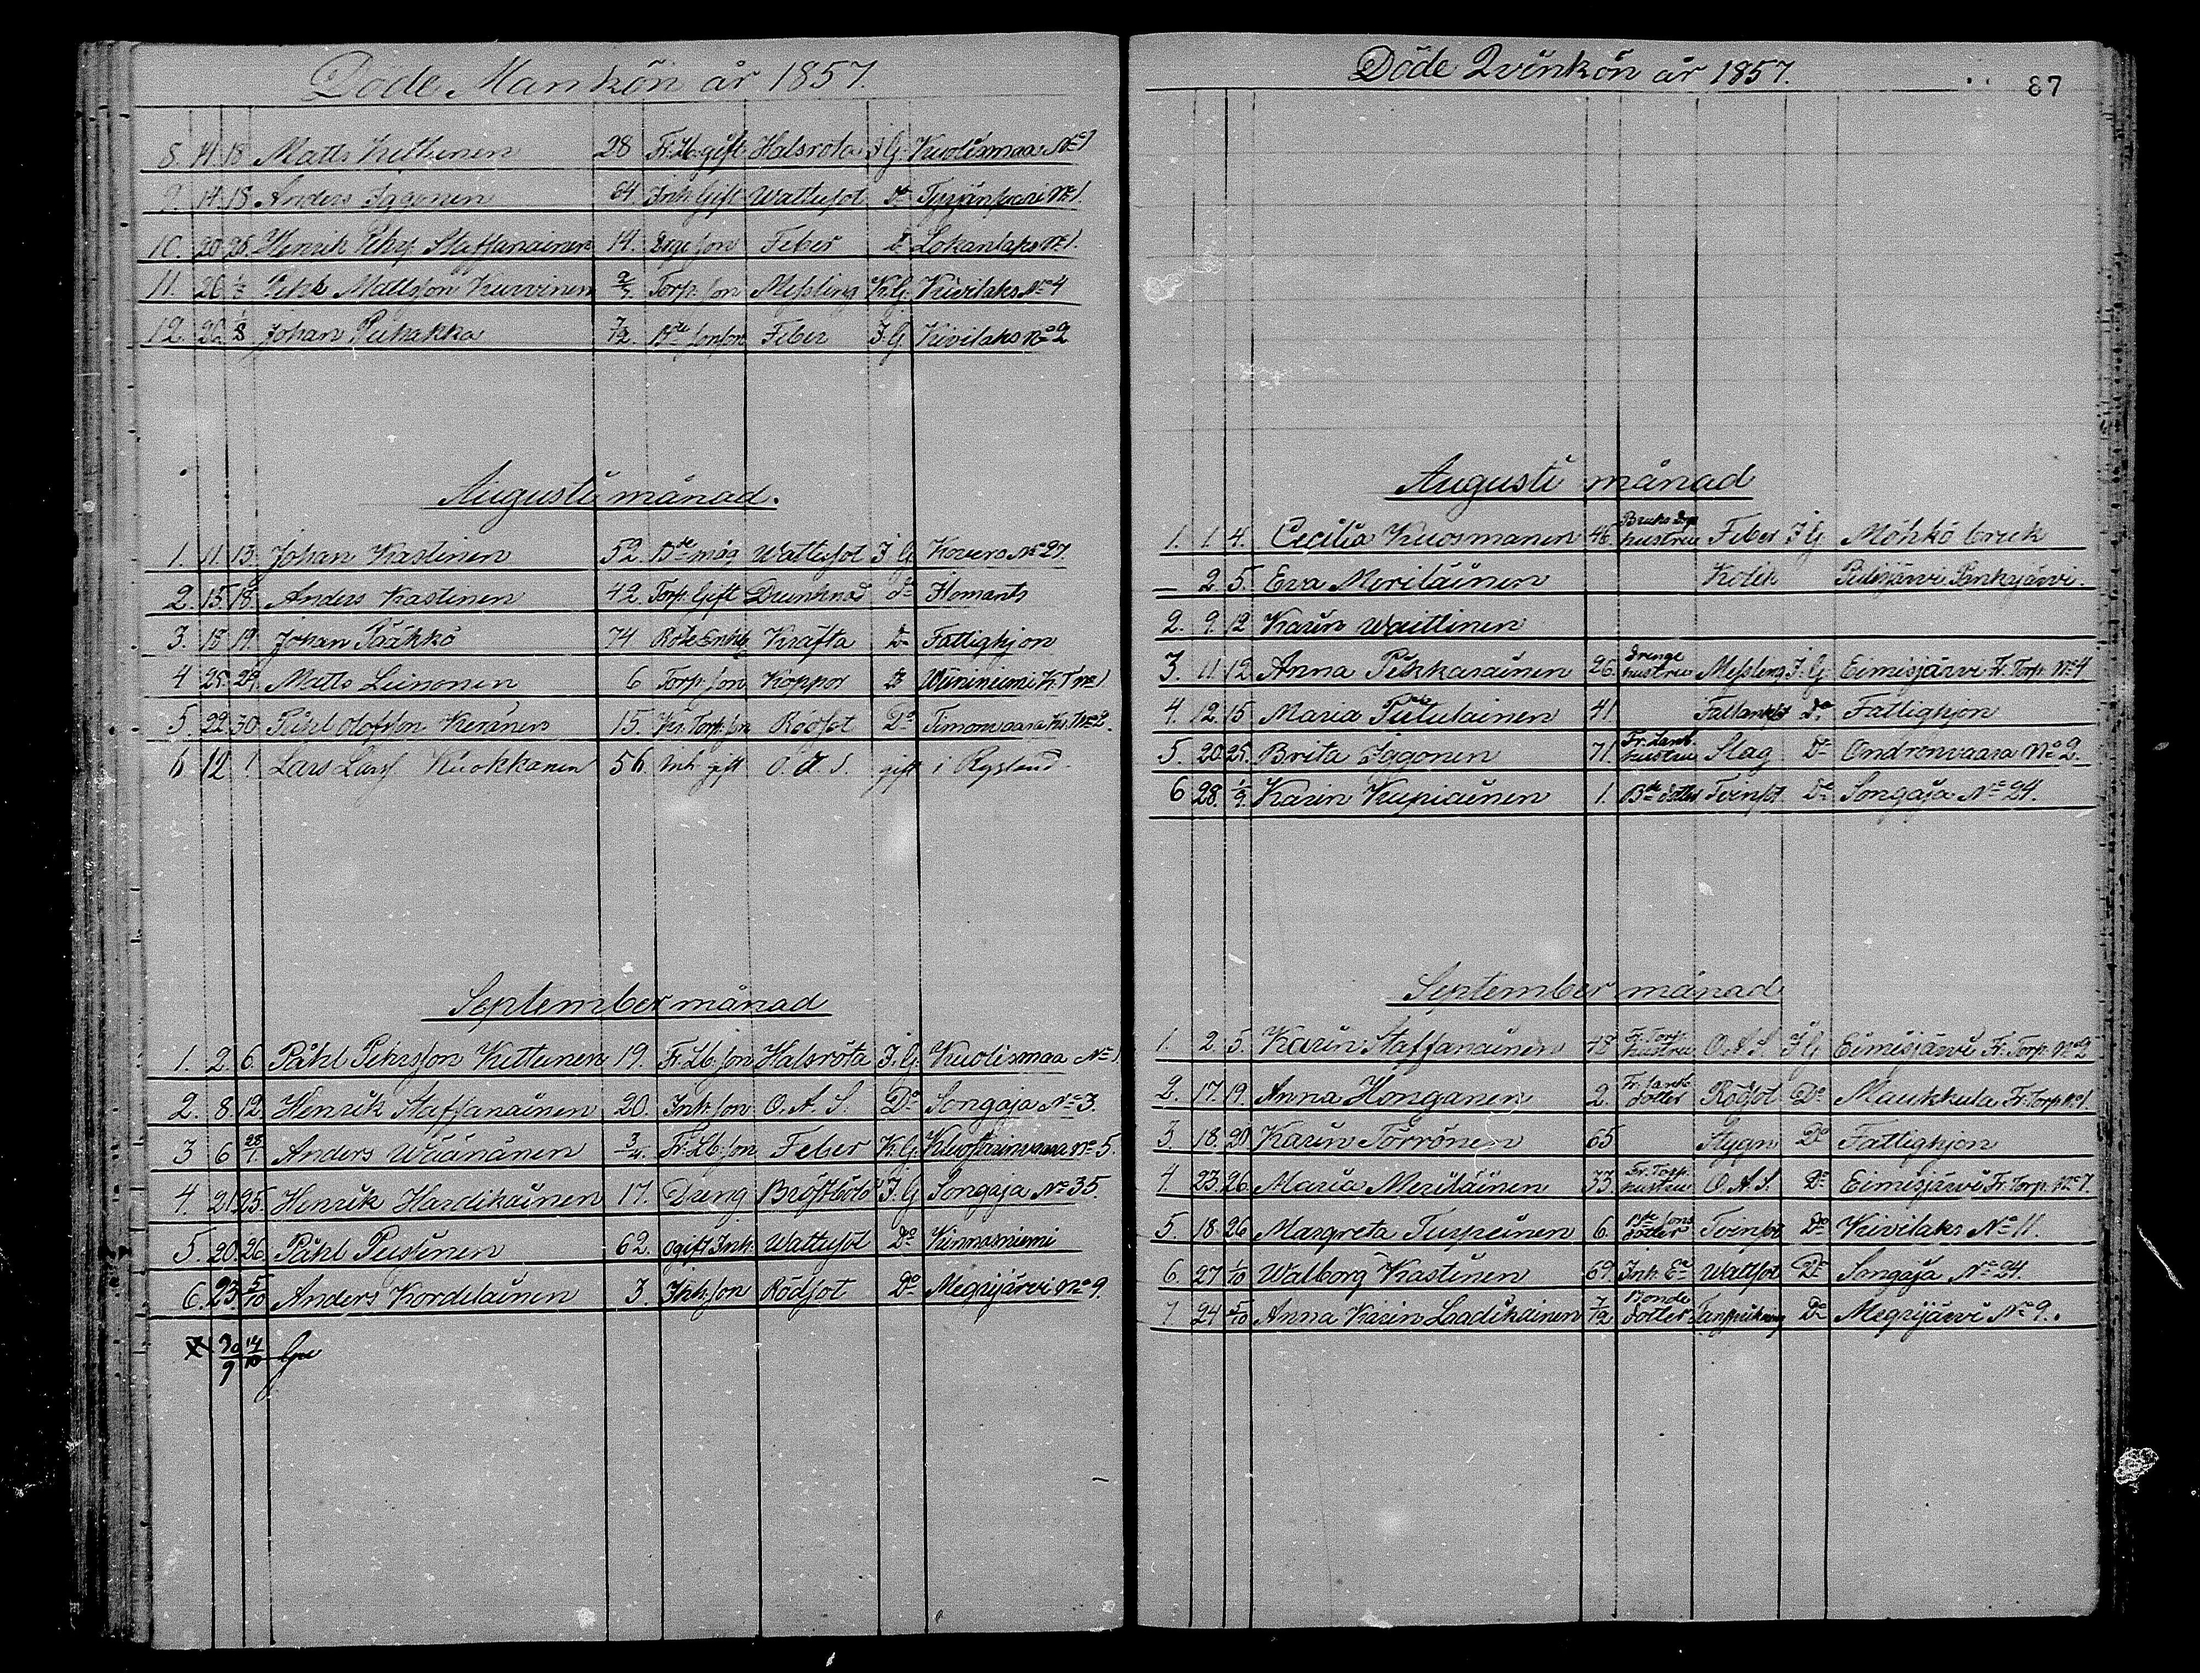 Döde Mankön år 1857.
8. 14. 18 Matts Kettunen 28 Fr. Lb. gift Halsröta I G. Kuolismaa No 1
9. 14. 18 Anders Iggonen 64. Inh. Gift Wattusot Do No 1.
10. 20. 25. Henrik Pehrss Staffanainen 14. son Feber Do Lokanlaks No 1.
11. 26 Mattsson Kurvinen Torp. son Messling K. G. Kivilaks No 4
12. Johan Puhakka 7/12. Bde sonson Feber I. G. Kivilaks No 2
Augusti månad.
1. 11. 13. Johan Kastinen 52. Bde måg Wattusot I G. Kovero No 27.
2. 15. 18. Anders Kastinen 42. Torp. Gift Drunknad do Ilomants
3. 18 19. Johan Pärkkö 74 Rote Enkl. Kräfta Do Fattighjon
4 25. 29. Matts Leinonen 6 Torp. son Koppor Do No 1.
5. 22. 30 Påhl Olofsson Keränen 15. Kr. Torp. son Rödsot Do Timonvaara Kr. T No 2.
6 12 1 Lars Larss Kuokkanen 56. Inh. gift O. A. S. gift i Ryssland.
September månad
1. 2. 6. Påhl Pehrsson Kettunen 19. Fr. Lb. son Halsröta I. G. Kuolismaa No 1
2. 8. 12 Henrik Staffanainen 20. Inh. son O. A. S. Do Songaja No 3.
3 6 28/7. Anders Wäänänen 3/4. Fr. Lb. son Feber K. G. No 5.
4. 21. 25. Henrik Hardikainen 17. Dreng Bröstböld I. G Songaja No 35.
5. 20. 26. Påhl Pustinen 62. Ogift Inh. Wattusot Do Kinnasniemi
6. 23. 5/10 Anders Kordelainen 3. Inh. son Rödsot Do Megrijärvi No 9.
30/9 14/10
Döde Qvinkön år 1857.
87
Augusti månad
1. 1. 4. Cecilia Kuosmanen 46. Bruks Drg hustru Feber I G Möhkö bruk
— 2. 5. Eva Meriläinen Kolik Pankajärvi.
2. 9. 12 Karin Waittinen
3. 11. 12. Anna Pikkarainen 26. Drenge hustru Messling I. G Eimisjärvi Fr. Torp. No 4
4. 12. 15 Maria Tutulainen 41 Do Fattighjon
5. 20. 25. Brita Iggonen 71. Fr. Lamb. hustru Slag Do Ondronvaara No 2.
6 28. 1/9. Karin Kupiainen 1. Bde dotter Tvinsot. Do Songaja No 24.
September månad
1. 2. 5. Karin Staffanainen 48 Fr. Torp. hustru O. A. S I G Eimisjärvi Fr. Torp. No 2
2. 17. 19. Anna Honganen 2. Fr. Lamb. dotter Rödsot Do Maukkula Fr. Torp. No 1.
3. 18. 20 Karin Törrönen 65 Stygn Do Fattighjon
4 23. 26. Maria Meriläinen 33. Fr. Torp. hustru O A S Do Eimisjärvi Fr. Torp. No 7.
5 18. 26 Margreta Turpeinen 6. Bde sons dotter Tvinsot Do Kivilaks No 11.
6. 27 1/10 Walborg Kastinen 69. Inh. Ea Wattsot Do Songaja No 24.
7 24 5/10 Anna Karin Laadikainen 7/12 Bonde dotter Tandsprickning Do Megrijärvi No 9.